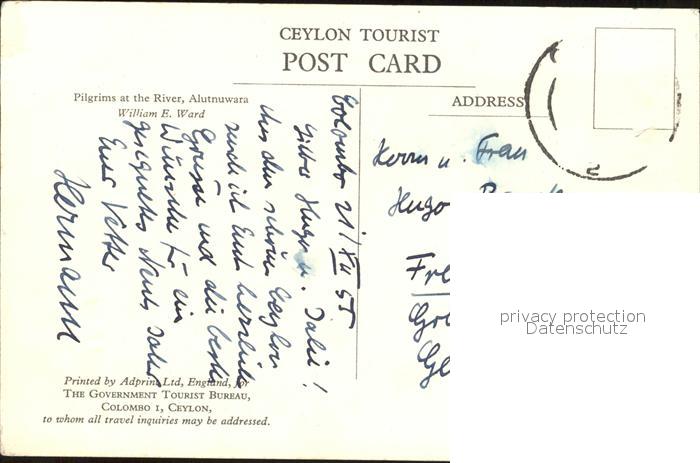 CEYLON TOURIST
POST CARD
Pilgrims at the River, Alutnuwara
William E. Ward
ADDRESS
Colombo 21/XII 55
Liebe Hugo u. Julie!
Aus dem schönen Ceylon
sende ich Euch herzliche
Grüsse und die besten
Wünsche für ein
gesegnetes Neues Jahr
Euer Vetter
Hermann
Herrn u. Frau
Hugo
Fre
Gl
Printed by Adprint Ltd, England, for
THE GOVERNMENT TOURIST BUREAU,
COLOMBO 1, CEYLON,
to whom all travel inquiries may be addressed.
privacy protection
Datenschutz